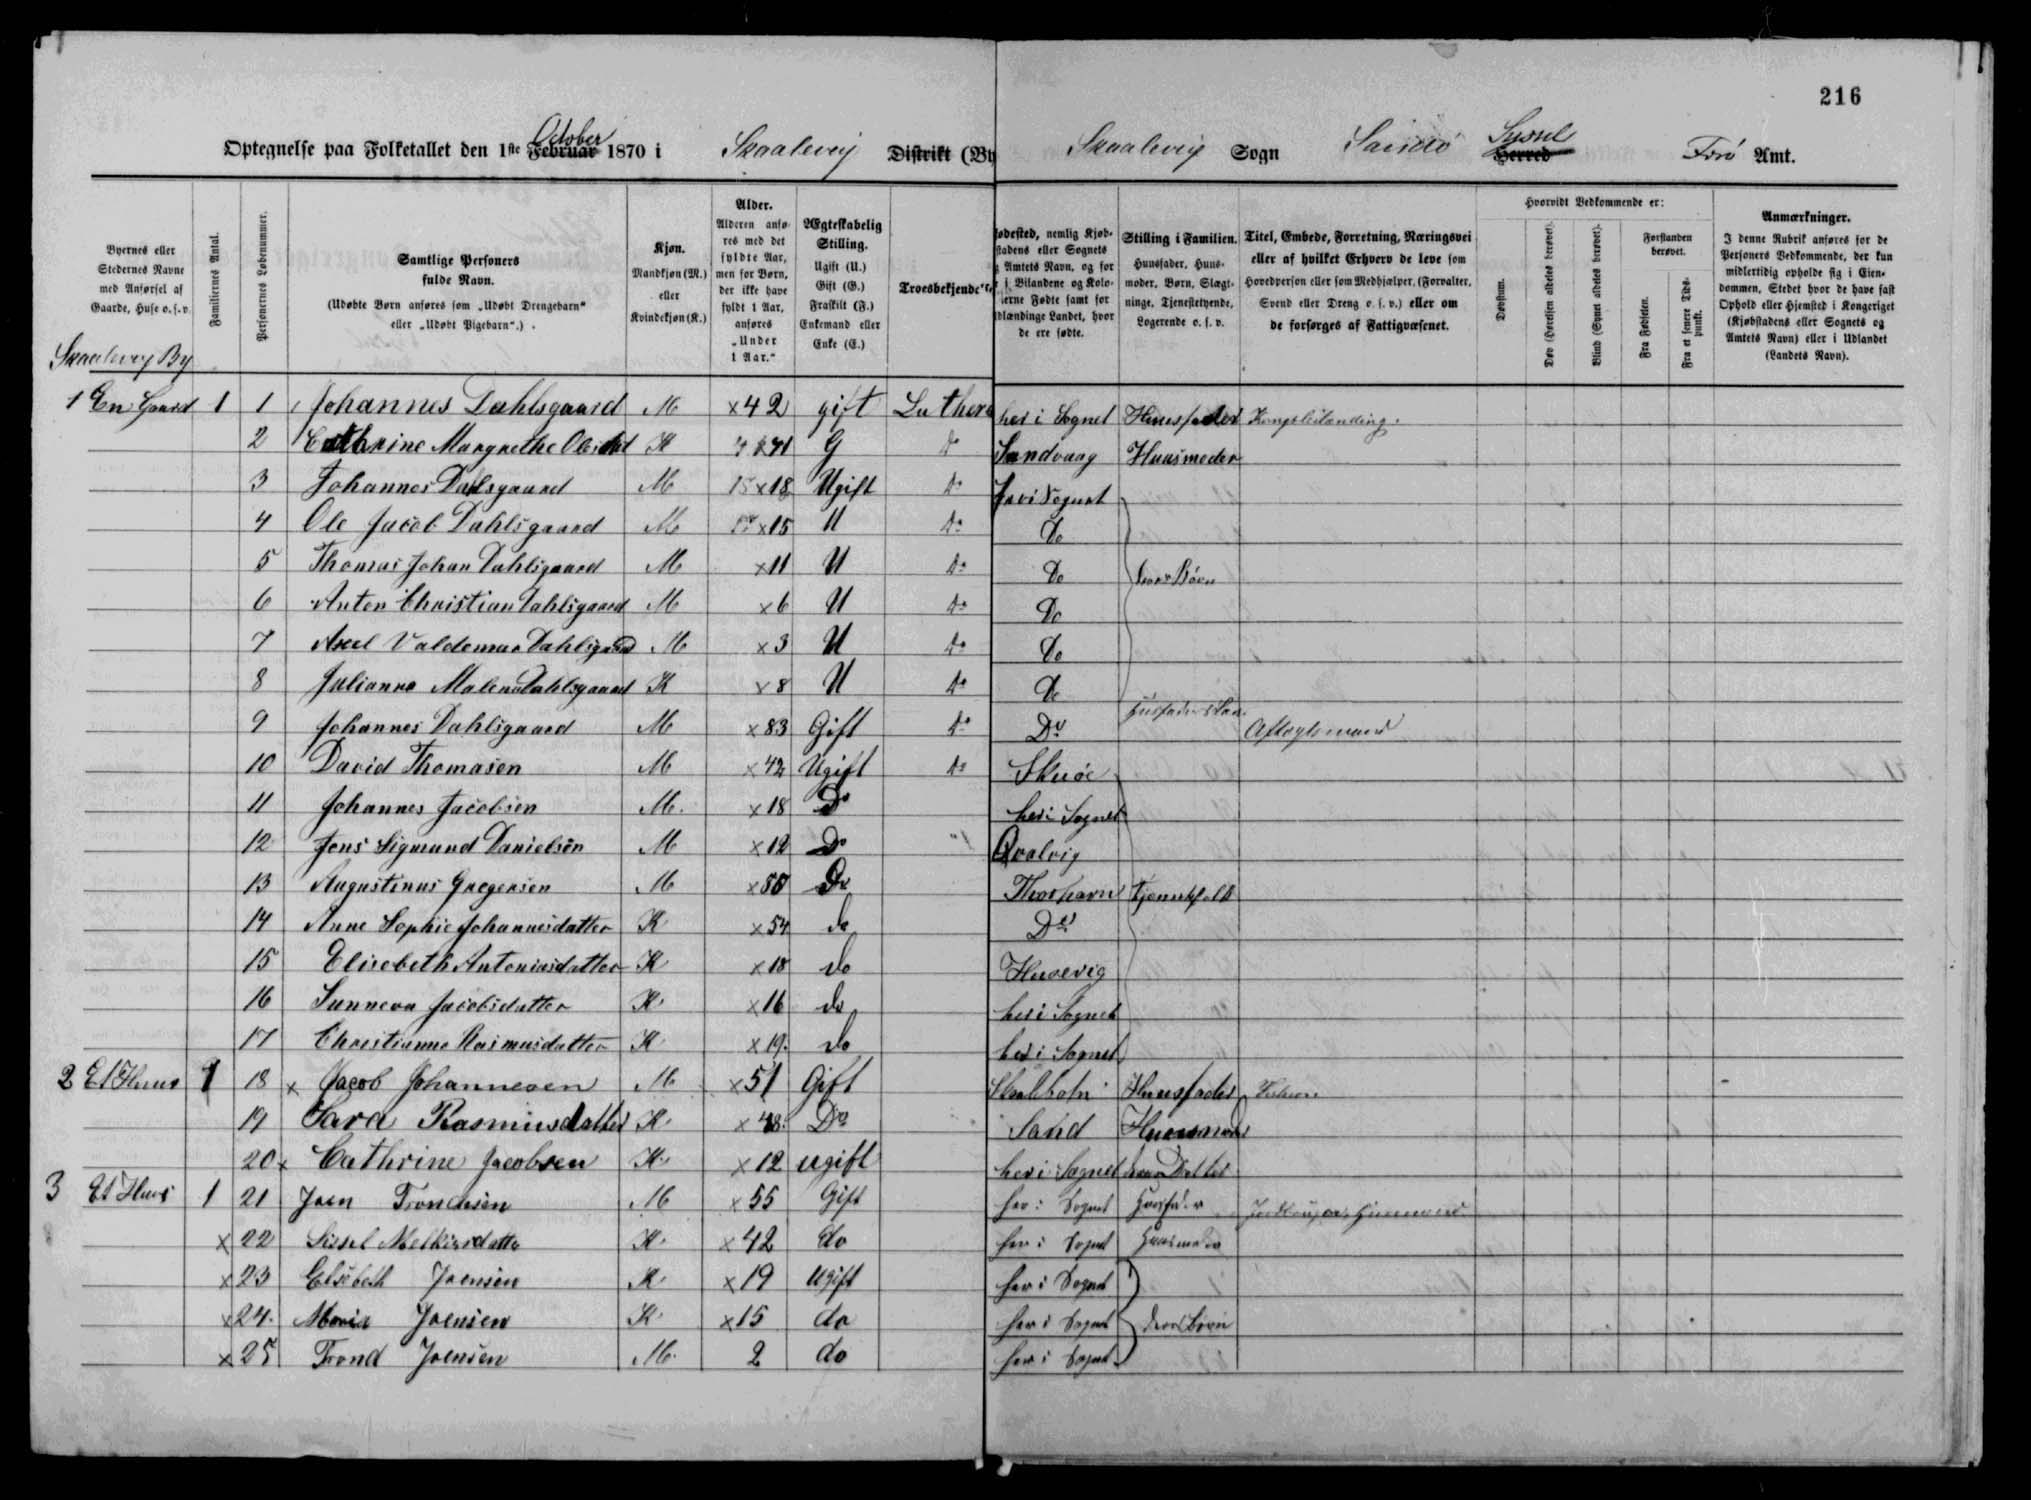 216
Optegnelse paa Folketallet den 1ste Februar October 1870 i Skaalevig Distrikt (By Skaalevig Sogn Sandø Herred Syssel Færø Amt.
Byernes eller Stedernes Navne med Anførsel af Gaarde, Huse o. s. v.
Familiernes Antal.
Personernes Løbenummer.
Samtlige Personers fulde Navn.
(Udøbte Børn anføres som „Udøbt Drengebarn“ eller „Udøbt Pigebarn“.)
Kjøn.
Mandkjøn (M.) eller Kvindekjøn (K.)
Alder.
Alderen anføres med det fyldte Aar, men for Børn, der ikke have fyldt 1 Aar, anføres „Under 1 Aar.“
Ægteskabelig Stilling.
Ugift (U.) Gift (G.) Fraskilt (F.) Enkemand eller Enke (E.)
Troesbekjende
ødested, nemlig Kjøbstadens eller Sognets g Amtets Navn, og for r i Bilandene og Kolonierne Fødte samt for dlændinge Landet, hvor de ere fødte.
Stilling i Familien.
Huusfader, Huusmoder, Børn, Slægtninge, Tjenestetyende, Logerende o. s. v.
Titel, Embede, Forretning, Næringsvei eller af hvilket Erhverv de leve som Hovedperson eller som Medhjælper, (Forvalter, Svend eller Dreng o. s. v.) eller om de forsørges af Fattigvæsenet.
Hvorvidt Vedkommende er:
Døvstum.
Døv (Hørelsen aldeles berøvet).
Blind (Synet aldeles berøvet).
Forstanden berøvet.
Fra Fødselen.
Fra et senere Tidspunkt.
Anmærkninger.
I denne Rubrik anføres for de Personers Vedkommende, der kun midlertidig opholde sig i Eiendommen, Stedet hvor de have fast Ophold eller Hjemsted i Kongeriget (Kjøbstadens eller Sognets og Amtets Navn) eller i Udlandet (Landets Navn).
Skaalevig By
1 En Gaard 1 1 Johannes Dahlsgaard M x42 gift Luthera her i Sognet Huusfader
2 Cathrine Margrethe K 41 G Do Sandvaag Huusmoder
3 Johannes Dahlsgaard M x18 Ugift Do her i Sognet
4 Ole Jacob Dahlsgaard M x15 U Do Do
5 Thomas Johan Dahlsgaard M x11 U Do Do deres Børn
6 Anton Christian Dahlsgaard M x6 U Do Do
7 Axel Valdemar Dahlsgaard M x3 U Do Do
8 Julianna Malena Dahlsgaard K x8 U Do Do
9 Johannes Dahlsgaard M x83 Gift Do Do Aftægtsmand
10 David Thomasen M x42 Ugift Do Skuøe
11 Johannes Jacobsen M. x18 Do her i Sognet
12 Jens Sigmund Danielsen M x12 Do Qvalvig
13 Augustinus Gregersen M x50 Do Thorshavn Tjenestefolk
14 Anne Sophie Johannesdatter K x54 do Do
15 Elisebeth Antoniusdatter K x18 do Husevig
16 Sunneva Jacobsdatter K x16 do her i Sognet
17 Christianna Rasmusdatter K x19. do her i Sognet
2 Et Huus 1 18 x Jacob Johannesen M x51 Gift Huusfader
19 Sara Rasmusdatter K x48. Do Sand Huusmoder
20 x Cathrine Jacobsen K. x12 ugift her i Sognet deres Datter
3 Et Huus 1 21 Joen Trondsen M x55 Gift her i Sognet Huusfader
x 22 Sissel K x42 do her i Sognet Huusmoder
x 23 Elsebeth Joensen K x19 Ugift her i Sognet
x 24. Maria Joensen K x15 do her i Sognet deres Børn
x 25 Trond Joensen M. 2 do her i Sognet